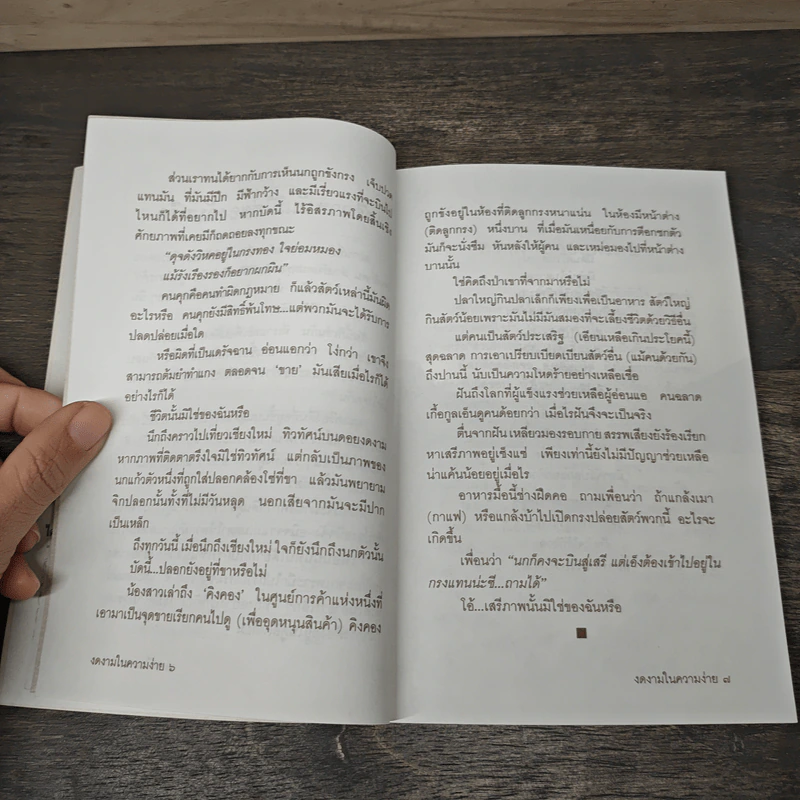 ส่วนเราทนได้ยากกับการเห็นนกถูกขังกรง เจ็บปวด
แทนมัน ที่มันมีปีก มีฟ้ากว้าง และมีเรี่ยวแรงที่จะบินไป
ไหนก็ได้ที่อยากไป หากบัดนี้ ไร้อิสรภาพโดยสิ้นเชิง
ศักยภาพที่เคยมีก็ถดถอยลงทุกขณะ
“ดุจดังวิหคอยู่ในกรงทอง ใจย่อมหมอง
แม้รังเรืองรองก็อยากผกผิน”
คนคุกคือคนทำผิดกฎหมาย ก็แล้วสัตว์เหล่านี้มันผิด
อะไรหรือ คนคุกยังมีสิทธิ์พ้นโทษ...แต่พวกมันจะได้รับการ
ปลดปล่อยเมื่อใด
หรือผิดที่เป็นเดรัจฉาน อ่อนแอกว่า โง่กว่า เขาจึง
สามารถต้มยำทำแกง ตลอดจน ‘ขาย’ มันเสียเมื่อไรก็ได้
อย่างไรก็ได้
ชีวิตนั้นมิใช่ของฉันหรือ
นึกถึงคราวไปเที่ยวเชียงใหม่ ทิวทัศน์บนดอยงดงาม
หากภาพที่ติดตาตรึงใจมิใช่ทิวทัศน์ แต่กลับเป็นภาพของ
นกแก้วตัวหนึ่งที่ถูกใส่ปลอกคล้องโซ่ที่ขา แล้วมันพยายาม
จิกปลอกนั้นทั้งที่ไม่มีวันหลุด นอกเสียจากมันจะมีปาก
เป็นเหล็ก
ถึงทุกวันนี้ เมื่อนึกถึงเชียงใหม่ ใจก็ยังนึกถึงนกตัวนั้น
บัดนี้...ปลอกยังอยู่ที่ขาหรือไม่
น้องสาวเล่าถึง ‘คิงคอง’ ในศูนย์การค้าแห่งหนึ่งที่
เอามาเป็นจุดขายเรียกคนไปดู (เพื่ออุดหนุนสินค้า) คิงคอง
งดงามในความง่าย ๖
ถูกขังอยู่ในห้องที่ติดลูกกรงหนาแน่น ในห้องมีหน้าต่าง
(ติดลูกกรง) หนึ่งบาน ที่เมื่อมันเหนื่อยกับการตีอกชกตัว
มันก็จะนั่งซึม หันหลังให้ผู้คน และเหม่อมองไปที่หน้าต่าง
บานนั้น
ใช่คิดถึงป่าเขาที่จากมาหรือไม่
ปลาใหญ่กินปลาเล็กก็เพียงเพื่อเป็นอาหาร สัตว์ใหญ่
กินสัตว์น้อยเพราะมันไม่มีมันสมองที่จะเลี้ยงชีวิตด้วยวิธีอื่น
แต่คนเป็นสัตว์ประเสริฐ (เอียนเหลือเกินประโยคนี้)
สุดฉลาด การเอาเปรียบเบียดเบียนสัตว์อื่น (แม้คนด้วยกัน)
ถึงปานนี้ นับเป็นความโหดร้ายอย่างเหลือเชื่อ
ฝันถึงโลกที่ผู้แข็งแรงช่วยเหลือผู้อ่อนแอ คนฉลาด
เกื้อกูลเอ็นดูคนด้อยกว่า เมื่อไรฝันจึงจะเป็นจริง
ตื่นจากฝัน เหลียวมองรอบกาย สรรพเสียงยังร้องเรียก
หาเสรีภาพอยู่เซ็งแซ่ เพียงเท่านี้ยังไม่มีปัญญาช่วยเหลือ
น่าแค้นน้อยอยู่เมื่อไร
อาหารมื้อนี้ช่างฝืดคอ ถามเพื่อนว่า ถ้าแกล้งเมา
(กาแฟ) หรือแกล้งบ้าไปเปิดกรงปล่อยสัตว์พวกนี้ อะไรจะ
เกิดขึ้น
เพื่อนว่า “นกก็คงจะบินสู่เสรี แต่เอ็งต้องเข้าไปอยู่ใน
กรงแทนน่ะซี...ถามได้”
โอ้...เสรีภาพนั้นมิใช่ของฉันหรือ
งดงามในความง่าย ๗